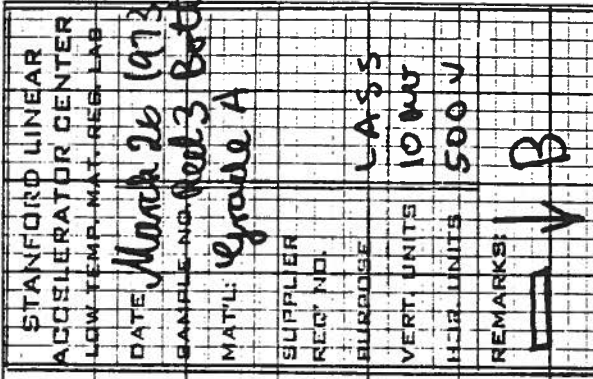 STANFORD LINEAR
ACCELERATOR CENTER
LOW TEMP. MAT. RES. LAB
DATE March 26 1973
SAMPLE NO. Reel 3 Bott
MAT'L: Grade A
SUPPLIER
REQ' NO.
PURPOSE LASS
VERT. UNITS 10 mv
HOR. UNITS 500 v
REMARKS: B